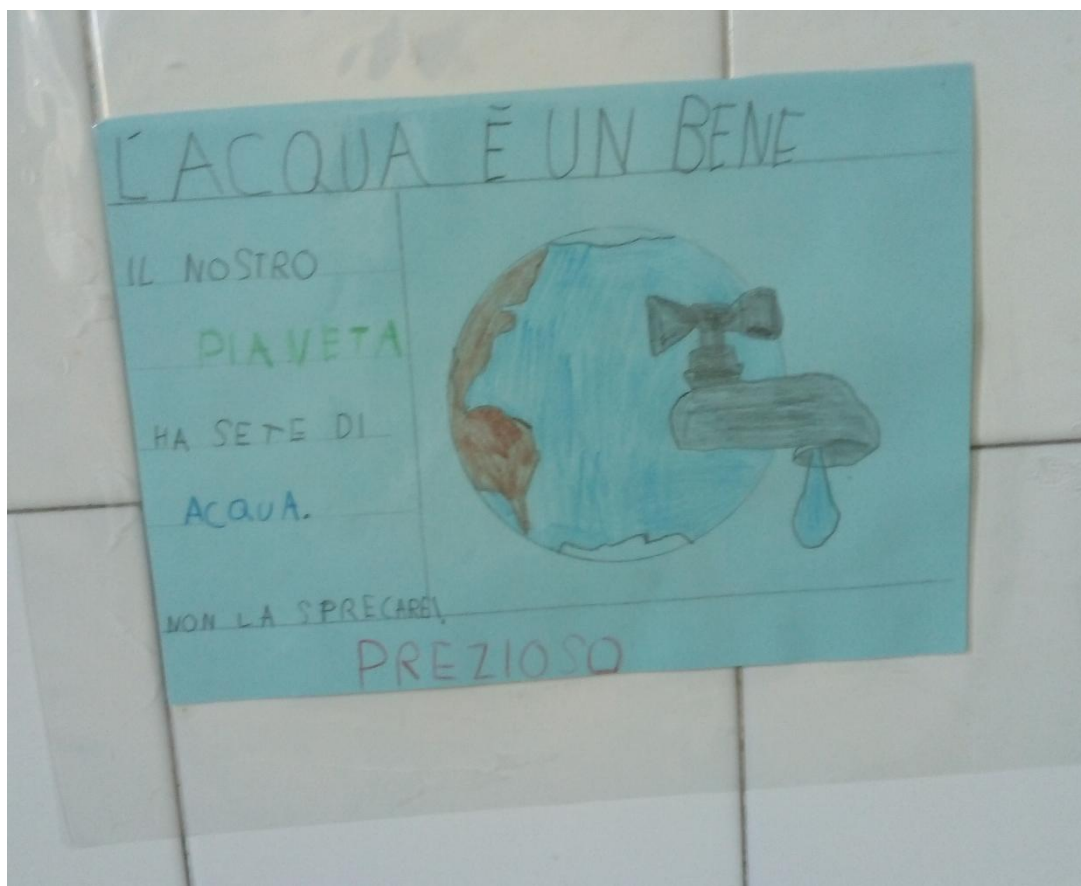 L'ACQUA È UN BENE
IL NOSTRO
PIANETA
HA SETE DI
ACQUA.
NON LA SPRECARE!
PREZIOSO